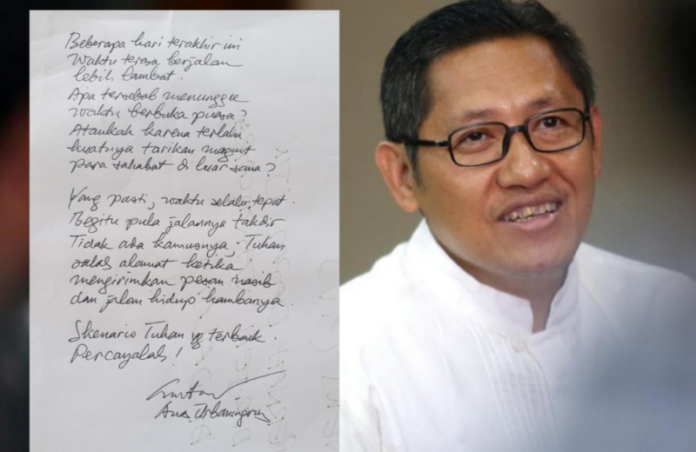 Beberapa hari terakhir ini
Waktu terasa berjalan
lebih lambat.
Apa tersebab menunggu
waktu berbuka puasa?
Ataukah karena terlalu
kuatnya tarikan magnit
para sahabat di luar sana?
Yang pasti, waktu selalu tepat.
Begitu pula jalannya takdir
Tidak ada kamusnya, Tuhan
salah alamat ketika
mengirimkan pesan nasib
dan jalan hidup hambanya
Skenario Tuhan yg terbaik.
Percayalah!
Anas Urbaningrum